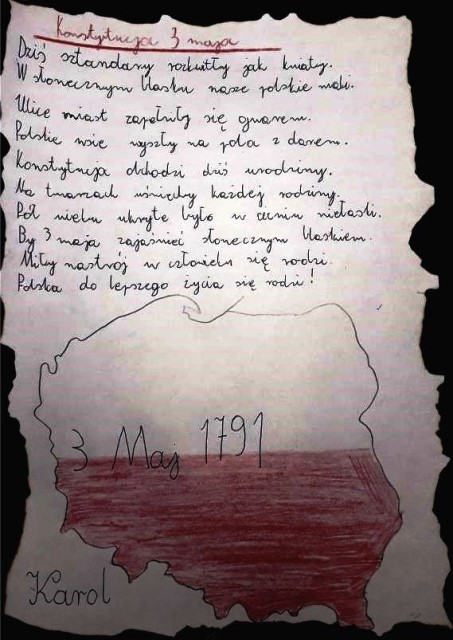 Konstytucja 3 maja
Dziś sztandary rozkwitły jak kwiaty.
W słonecznym blasku nasze polskie maki.
Ulice miast zapełniły się gwarem.
Polskie wsie wyszły na pola z darem.
Konstytucja obchodzi dziś urodziny.
Na twarzach uśmiechy każdej rodziny.
Pół wieku ukryte było w cieniu niełaski.
By 3 maja zajaśnieć słonecznym blaskiem.
Miły nastrój w człowieku się rodzi.
Polska do lepszego życia się rodzi!
3 Maj 1791
Karol